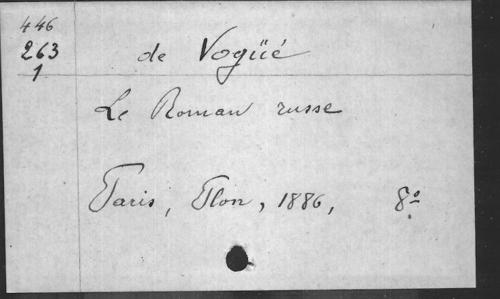 446
263 de Vogüé
1
Le Roman russe
Paris, Plon, 1886, 8º